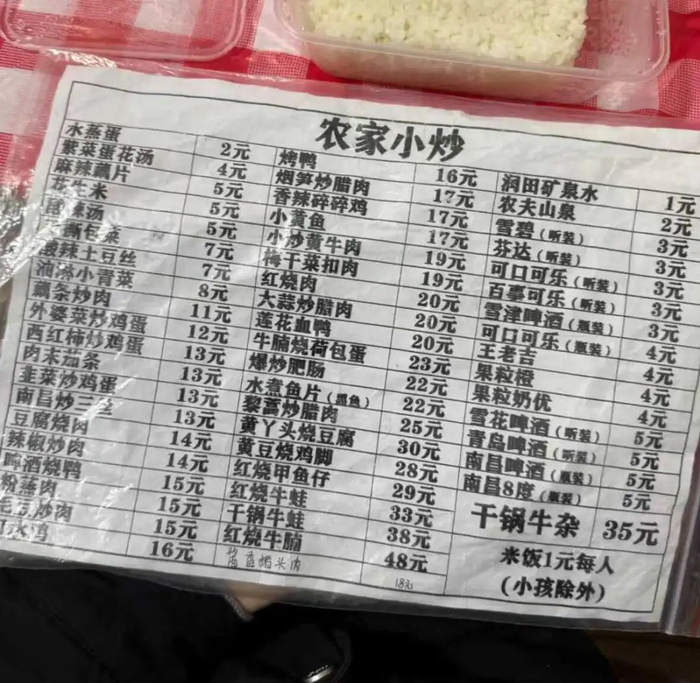 农家小炒
水蒸蛋 2元 烤鸭 16元 润田矿泉水 1元
紫菜蛋花汤 4元 烟笋炒腊肉 17元 农夫山泉 2元
麻辣藕片 5元 香辣碎碎鸡 17元 雪碧（听装） 3元
花生米 5元 小黄鱼 17元 芬达（听装） 3元
辣汤 5元 小炒黄牛肉 19元 可口可乐（听装） 3元
手撕包菜 7元 梅干菜扣肉 19元 百事可乐（听装） 3元
酸辣土豆丝 7元 红烧肉 20元 雪津啤酒（瓶装） 3元
油淋小青菜 8元 大蒜炒腊肉 20元 可口可乐（瓶装） 4元
藕条炒肉 11元 莲花血鸭 20元 王老吉 4元
外婆菜炒鸡蛋 12元 牛腩烧荷包蛋 23元 果粒橙 4元
西红柿炒鸡蛋 13元 爆炒肥肠 22元 果粒奶优 4元
肉末茄条 13元 水煮鱼片（黑鱼） 22元 雪花啤酒（听装） 5元
韭菜炒鸡蛋 13元 藜蒿炒腊肉 25元 青岛啤酒（听装） 5元
南昌炒三丝 13元 黄丫头烧豆腐 30元 南昌啤酒（瓶装） 5元
豆腐烧肉 14元 黄豆烧鸡脚 28元 南昌8度（瓶装） 5元
辣椒炒肉 14元 红烧甲鱼仔 29元 干锅牛杂 35元
啤酒烧鸭 15元 红烧牛蛙 33元 米饭1元每人
粉蒸肉 15元 干锅牛蛙 38元 （小孩除外）
毛豆炒肉 15元 红烧牛腩 48元
口水鸡 16元 酱香猪头肉 18元